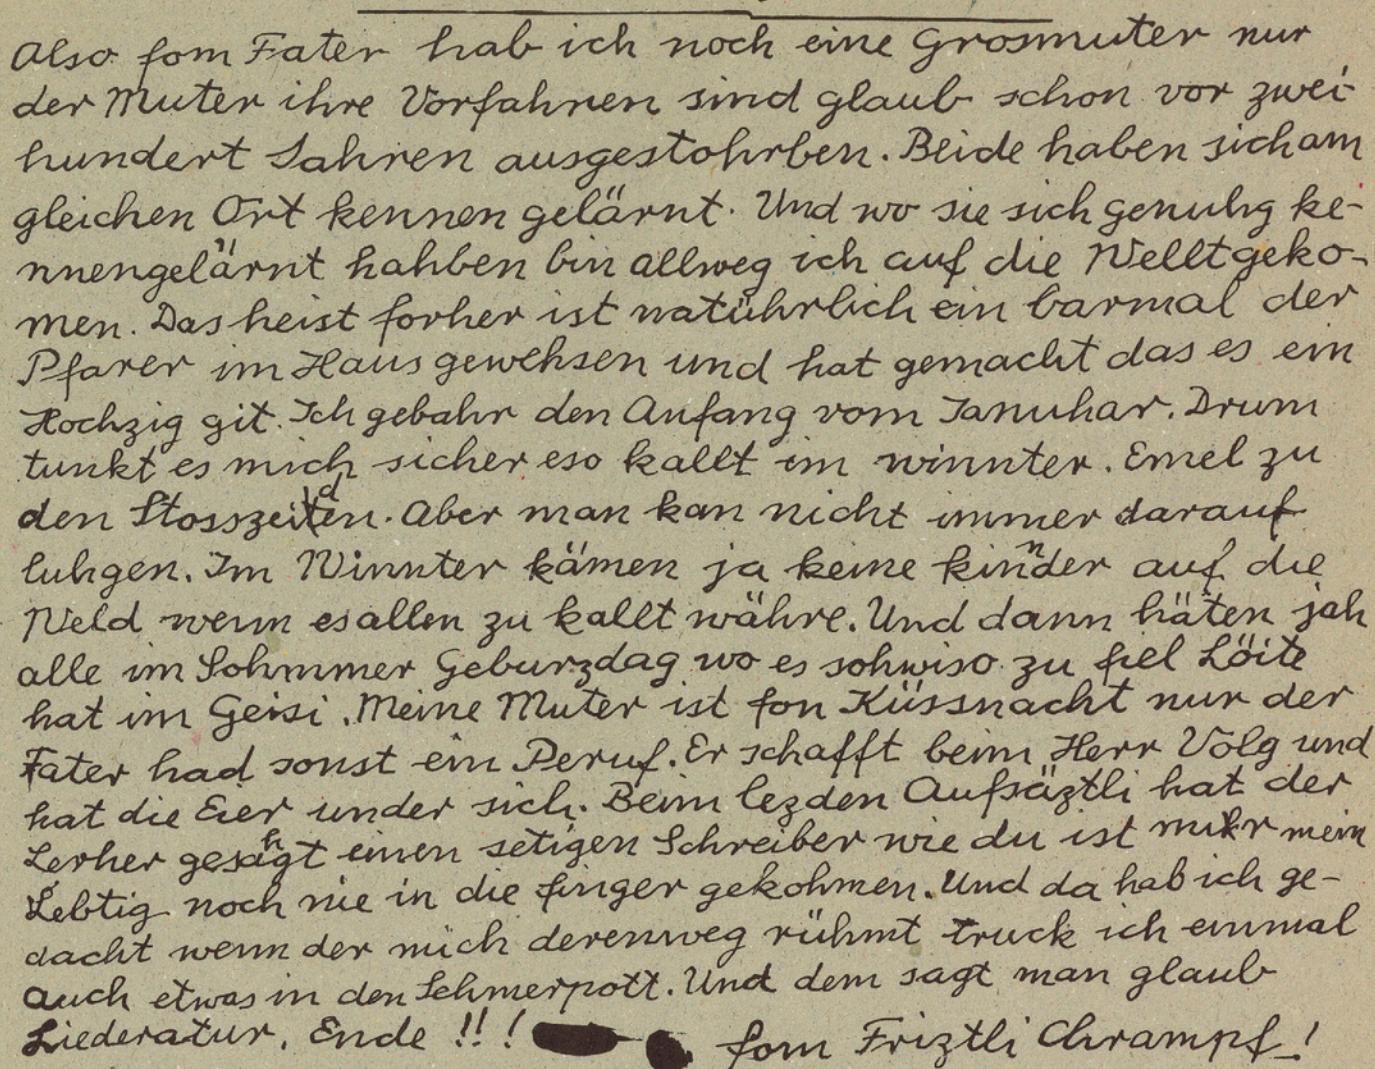 Also fom Fater hab ich noch eine Grosmuter nur
der Muter ihre Vorfahren sind glaub schon vor zwei
hundert Jahren ausgestohrben. Beide haben sich am
gleichen Ort kennen gelärnt. Und wo sie sich genuhg ke-
nnengelärnt hahben bin allweg ich auf die Welltgeko-
men. Das heist forher ist natührlich ein barmal der
Pfarer im Haus gewehsen und hat gemacht das es ein
Hochzig git. Ich gebahr den Anfang vom Januhar. Drum
tunkt es mich sicher eso kallt im winnter. Emel zu
den Stosszeiden. Aber man kan nicht immer darauf
luhgen. Im Winnter kämen ja keine kinnder auf die
Weld wenn es allen zu kallt währe. Und dann häten jah
alle im Sohmmer Geburzdag wo es sohwiso zu fiel Löite
hat im Geisi. Meine Muter ist fon Küssnacht nur der
Fater had sonst ein Peruf. Er schafft beim Herr Volg und
hat die Eier under sich. Beim lezden Aufsäztli hat der
Lerher gesahgt einen setigen Schreiber wie du ist mihr mein
Lebtig noch nie in die finger gekohmen. Und da hab ich ge-
dacht wenn der mich derenweg rühmt truck ich einmal
auch etwas in den Schmerpott. Und dem sagt man glaub
Liederatur. Ende !!! fom Friztli Chrampf!